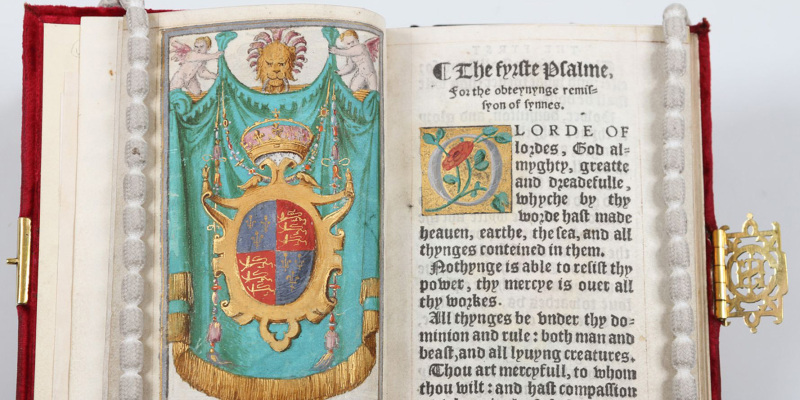 ¶ The fyrste Psalme,
For the obteynynge remis-
syon of synnes.
O LORDE OF
lordes, God al-
myghty, greatte
and dreadefulle,
whyche by thy
worde hast made
heauen, earthe, the sea, and all
thynges conteined in them.
Nothynge is able to resist thy
power, thy mercye is ouer all
thy workes.
All thynges be vnder thy do-
minion and rule: both man and
beast, and all lyuyng creatures.
Thou art mercyfull, to whom
thou wilt: and hast compassion